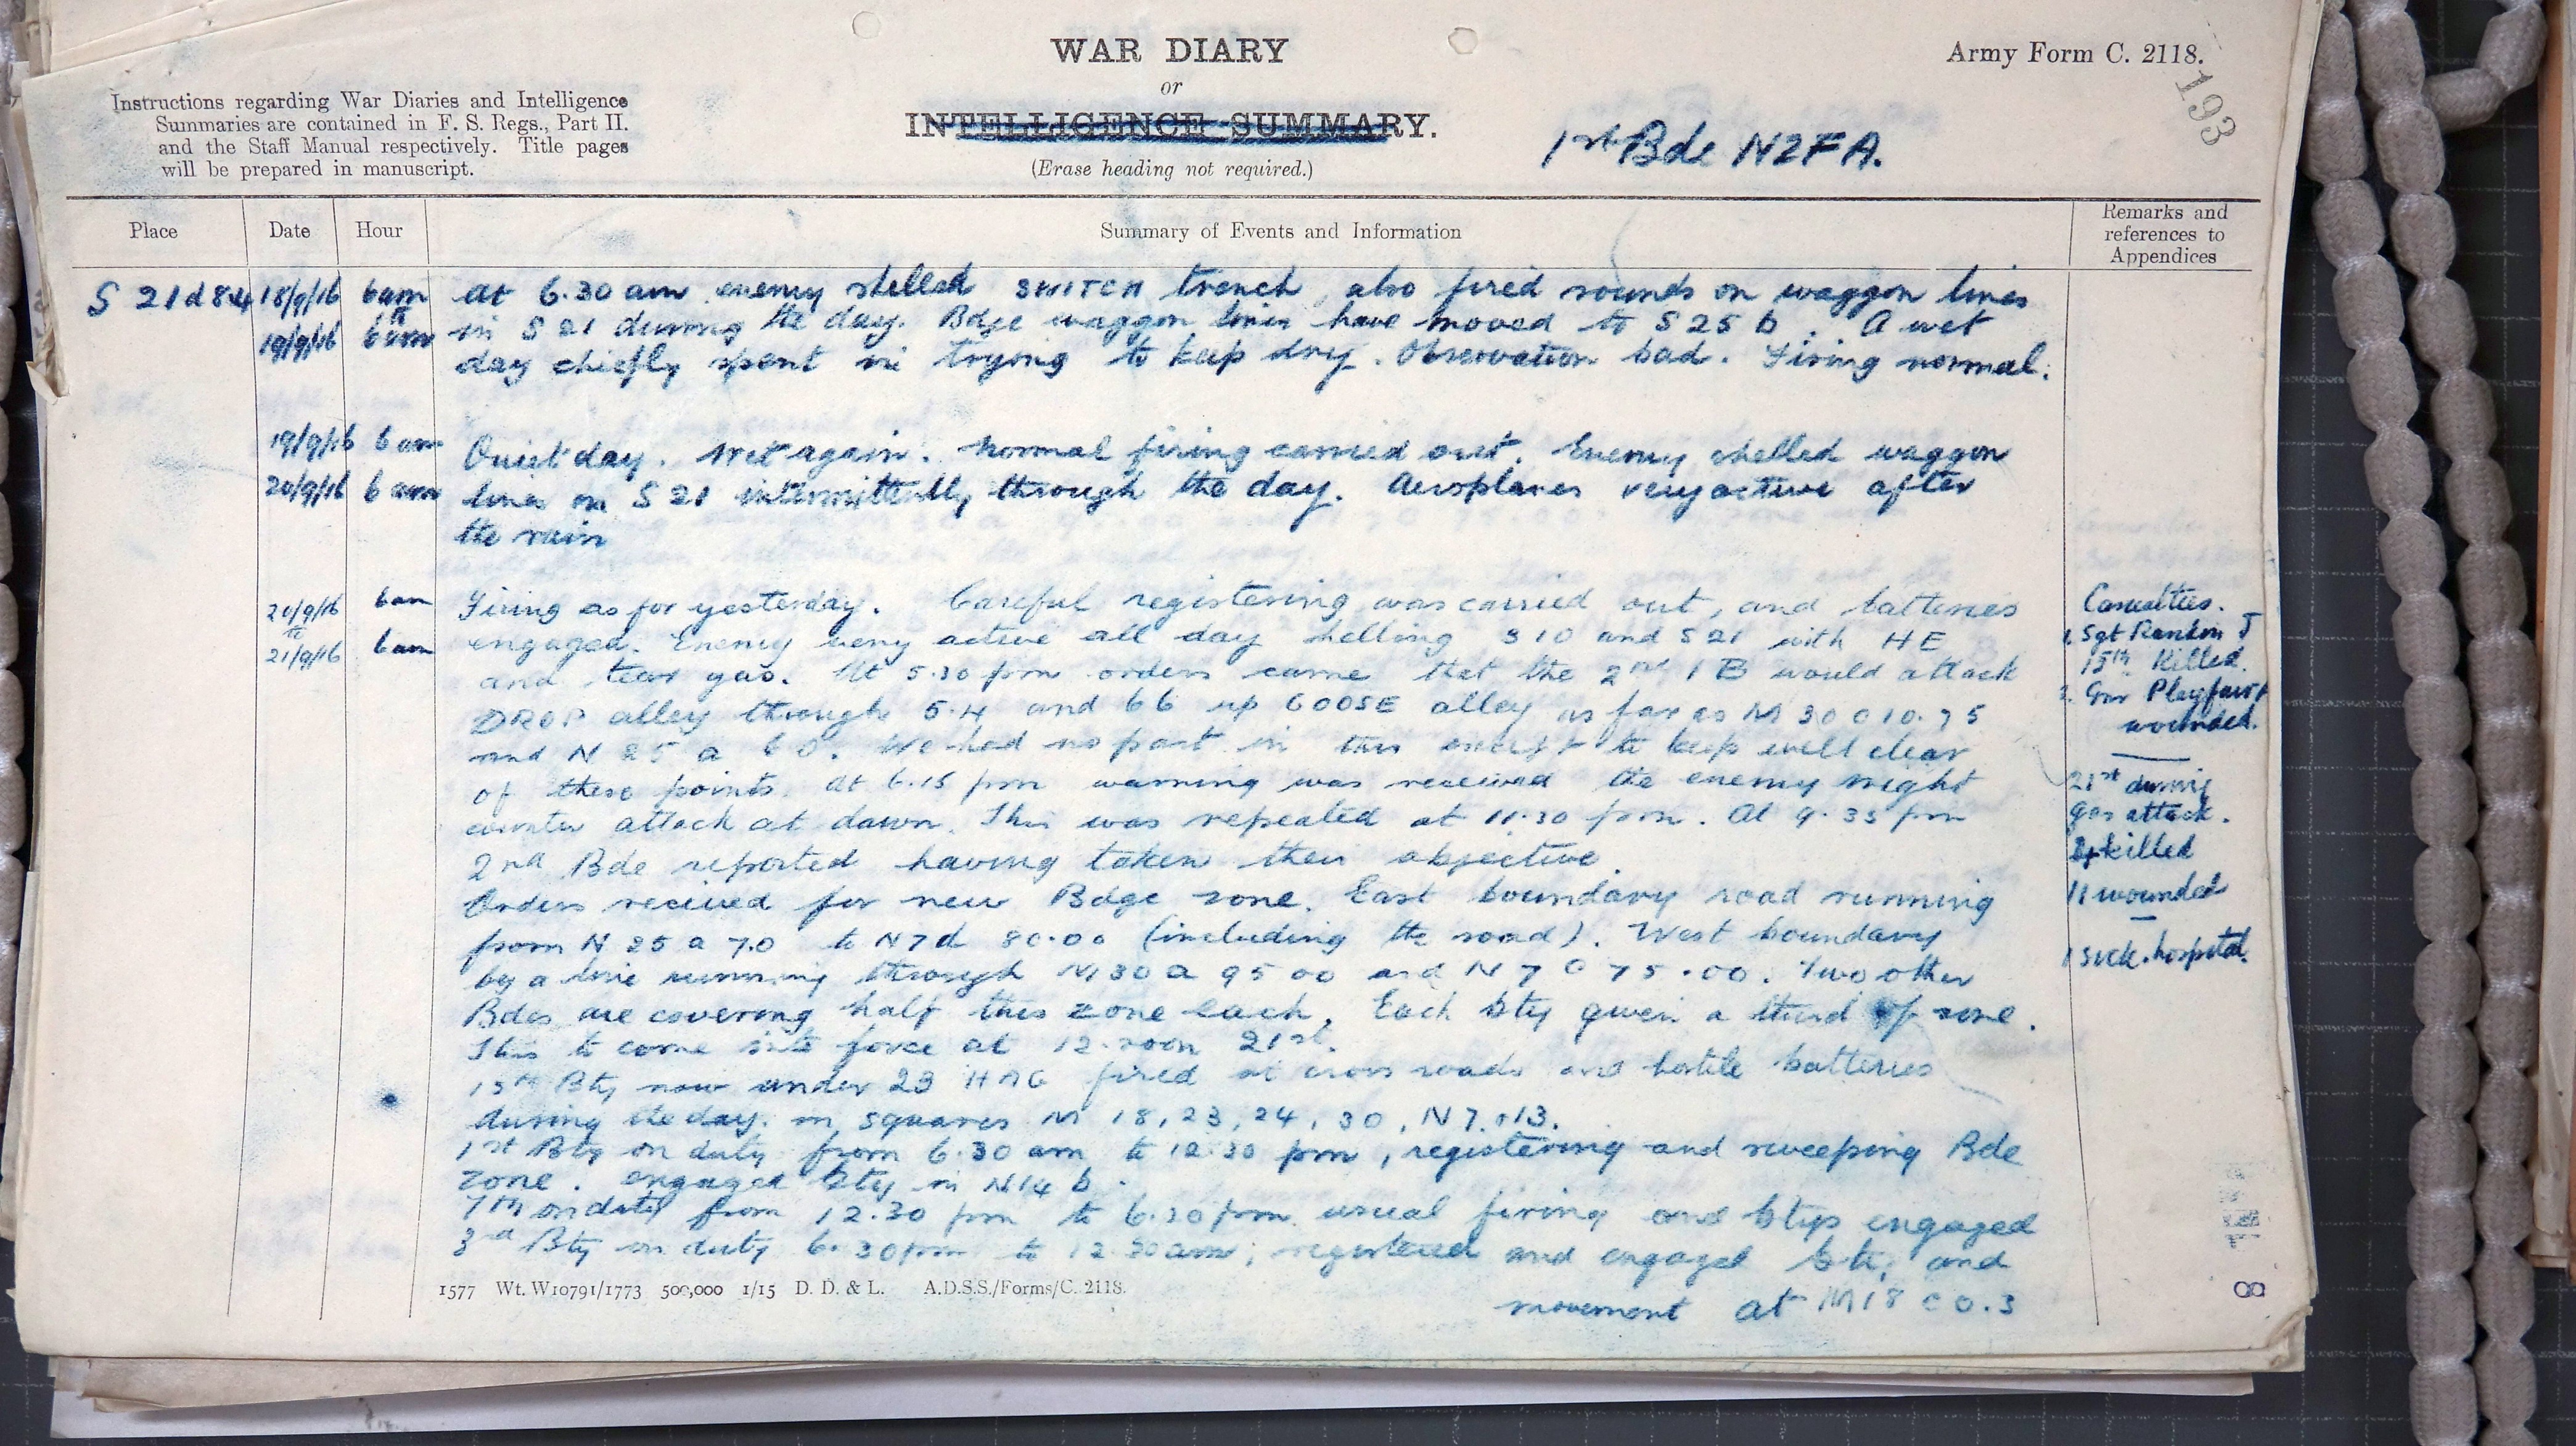 WAR DIARY
or
INTELLIGENCE SUMMARY.
(Erase heading not required.)
Army Form C. 2118.
193
Instructions regarding War Diaries and Intelligence
Summaries are contained in F. S. Regs., Part II.
and the Staff Manual respectively. Title pages
will be prepared in manuscript.
1st Bde NZFA.
Place Date Hour Summary of Events and Information Remarks and references to Appendices
S 21 d 8.4 18/9/16 6am At 6.30 am enemy shelled SWITCH trench, also fired rounds on waggon lines
19/9/16 6am in S 21 during the day. Bdge waggon lines have moved to S 25 b. A wet
day chiefly spent in trying to keep dry. Observation bad. Firing normal.
19/9/16 6 am Quiet day. Wet again. Normal firing carried out. Enemy shelled waggon
20/9/16 6 am lines on S 21 intermittently through the day. Aeroplanes very active after
the rain
20/9/16 6am Firing as for yesterday. Careful registering was carried out, and batteries
to
21/9/16 6am engaged. Enemy very active all day shelling S10 and S21 with HE
and tear gas. At 5.30 pm orders came that the 2nd IB would attack
DROP alley through 5.4 and 66 up GOOSE alley as far as M 30 c 10.75
and N 25 a 6 0. We had no part in this except to keep well clear
of these points. At 6.15 pm warning was received the enemy might
counter attack at dawn. This was repeated at 11.30 pm. At 9.35 pm
2nd Bde reported having taken their objective.
Orders received for new Bdge zone. East boundary road running
from N 25 a 7.0 to N7d 80.00 (including the road). West boundary
by a line running through M30 a 95 00 and N 7 c 75.00. Two other
Bdes are covering half this zone each. Each bty given a third of zone.
This to come into force at 12 noon 21st.
15th Bty now under 23 HAG fired at cross roads and hostile batteries
during the day in squares M 18, 23, 24, 30, N7.13.
1st Bty on duty from 6.30 am to 12.30 pm, registering and sweeping Bde
zone. engaged bty in N14 b.
7th on duty from 12.30 pm to 6.30 pm usual firing and btys engaged
3rd Bty on duty 6.30pm to 12.30am; registered and engaged bty and
movement at M18 c 0.3
Casualties.
1. Sgt Rankin J
15th Killed.
2. Gnr Playfair
wounded.
21st during
gas attack.
killed
11 wounded
1 sick. hospital.
1577 Wt. W10791/1773 500,000 1/15 D. D. & L. A.D.S.S./Forms/C. 2118.
8